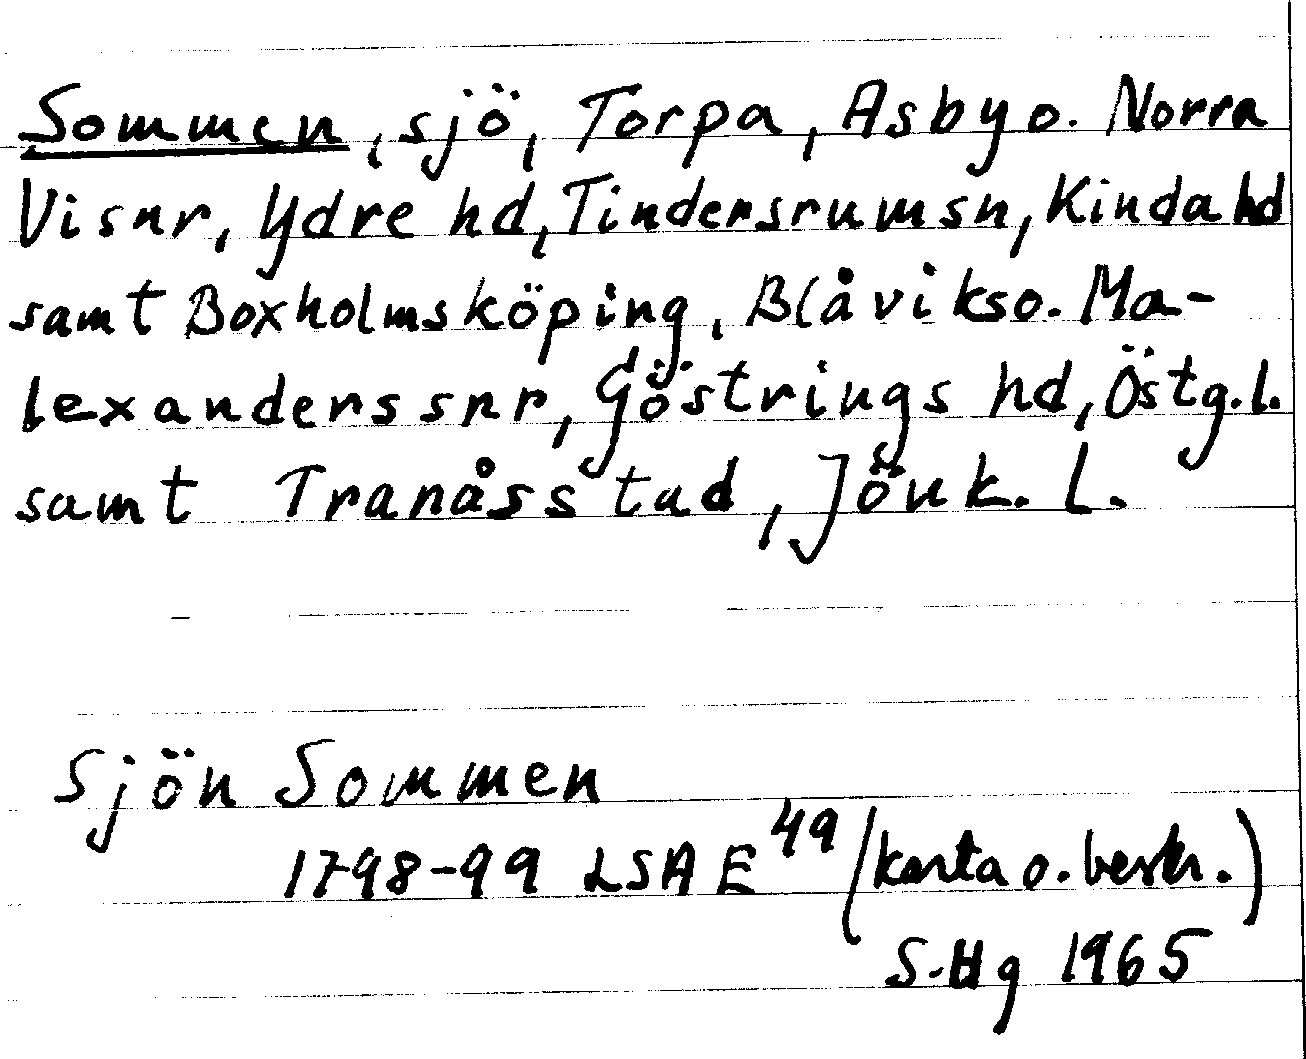 Sommen, sjö, Torpa, Asby o. Norra
Visnr, Ydre hd, Tindersrumsn, Kinda hd
samt Boxholmsköping, Blåviks o. Ma-
lexanderssnr, Göstrings hd, Östg.l.
samt Tranås stad, Jönk. l.
Sjön Sommen
1798-99 LSA E 49 (karta o. beskr.)
S-Hg 1965